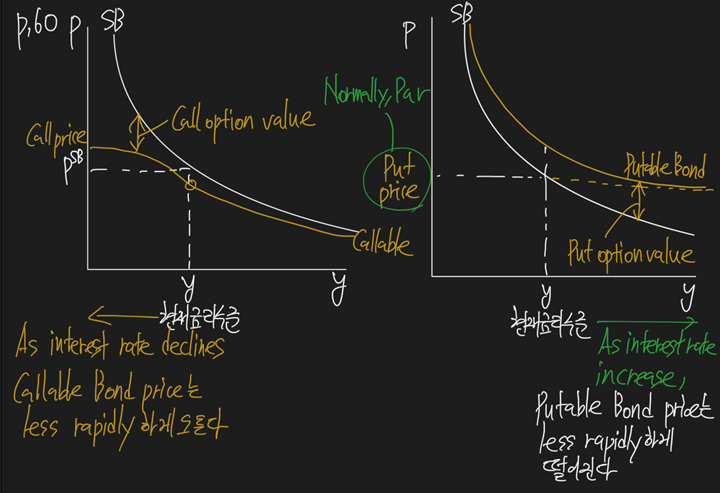 p.60
P
SB
Call option value
Call price
P^SB
Callable
y
y
현재금리수준
As interest rate declines
Callable Bond price는
less rapidly 하게 오른다
SB
P
Normally, Par
Put
price
Putable Bond
Put option value
y
y
현재금리수준
As interest rate
increase,
Putable Bond price는
less rapidly하게
떨어진다